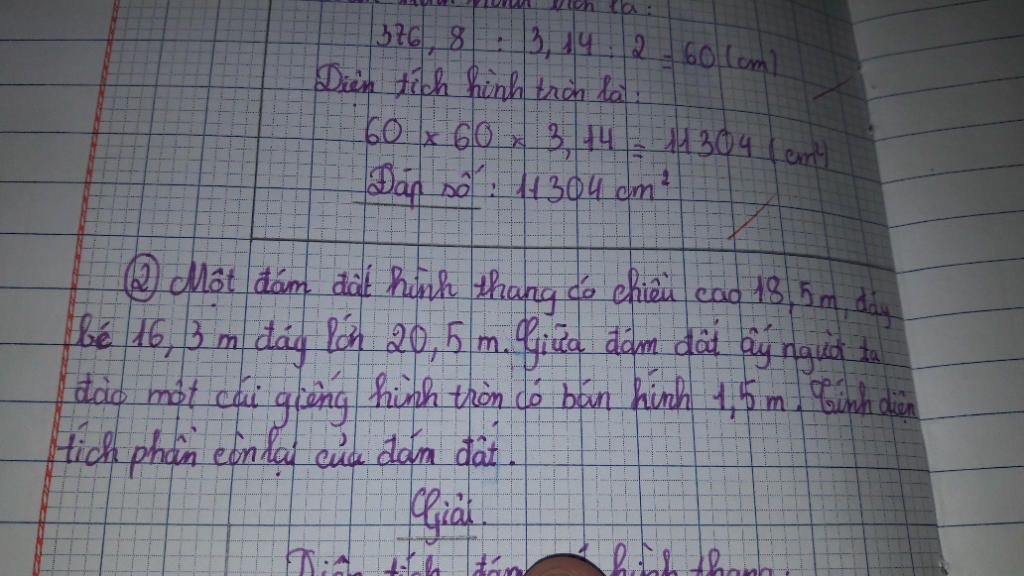 hình tròn là:
376,8 : 3,14 : 2 = 60 (cm)
Diện tích hình tròn là:
60 x 60 x 3,14 = 11304 (cm²)
Đáp số : 11304 cm²
② Một đám đất hình thang có chiều cao 18,5m, đáy
bé 16,3 m đáy lớn 20,5 m. Giữa đám đất ấy người ta
đào một cái giếng hình tròn có bán hính 1,5 m. Tính diện
tích phần còn lại của đám đất.
Giải.
Diện tích đám hình thang: